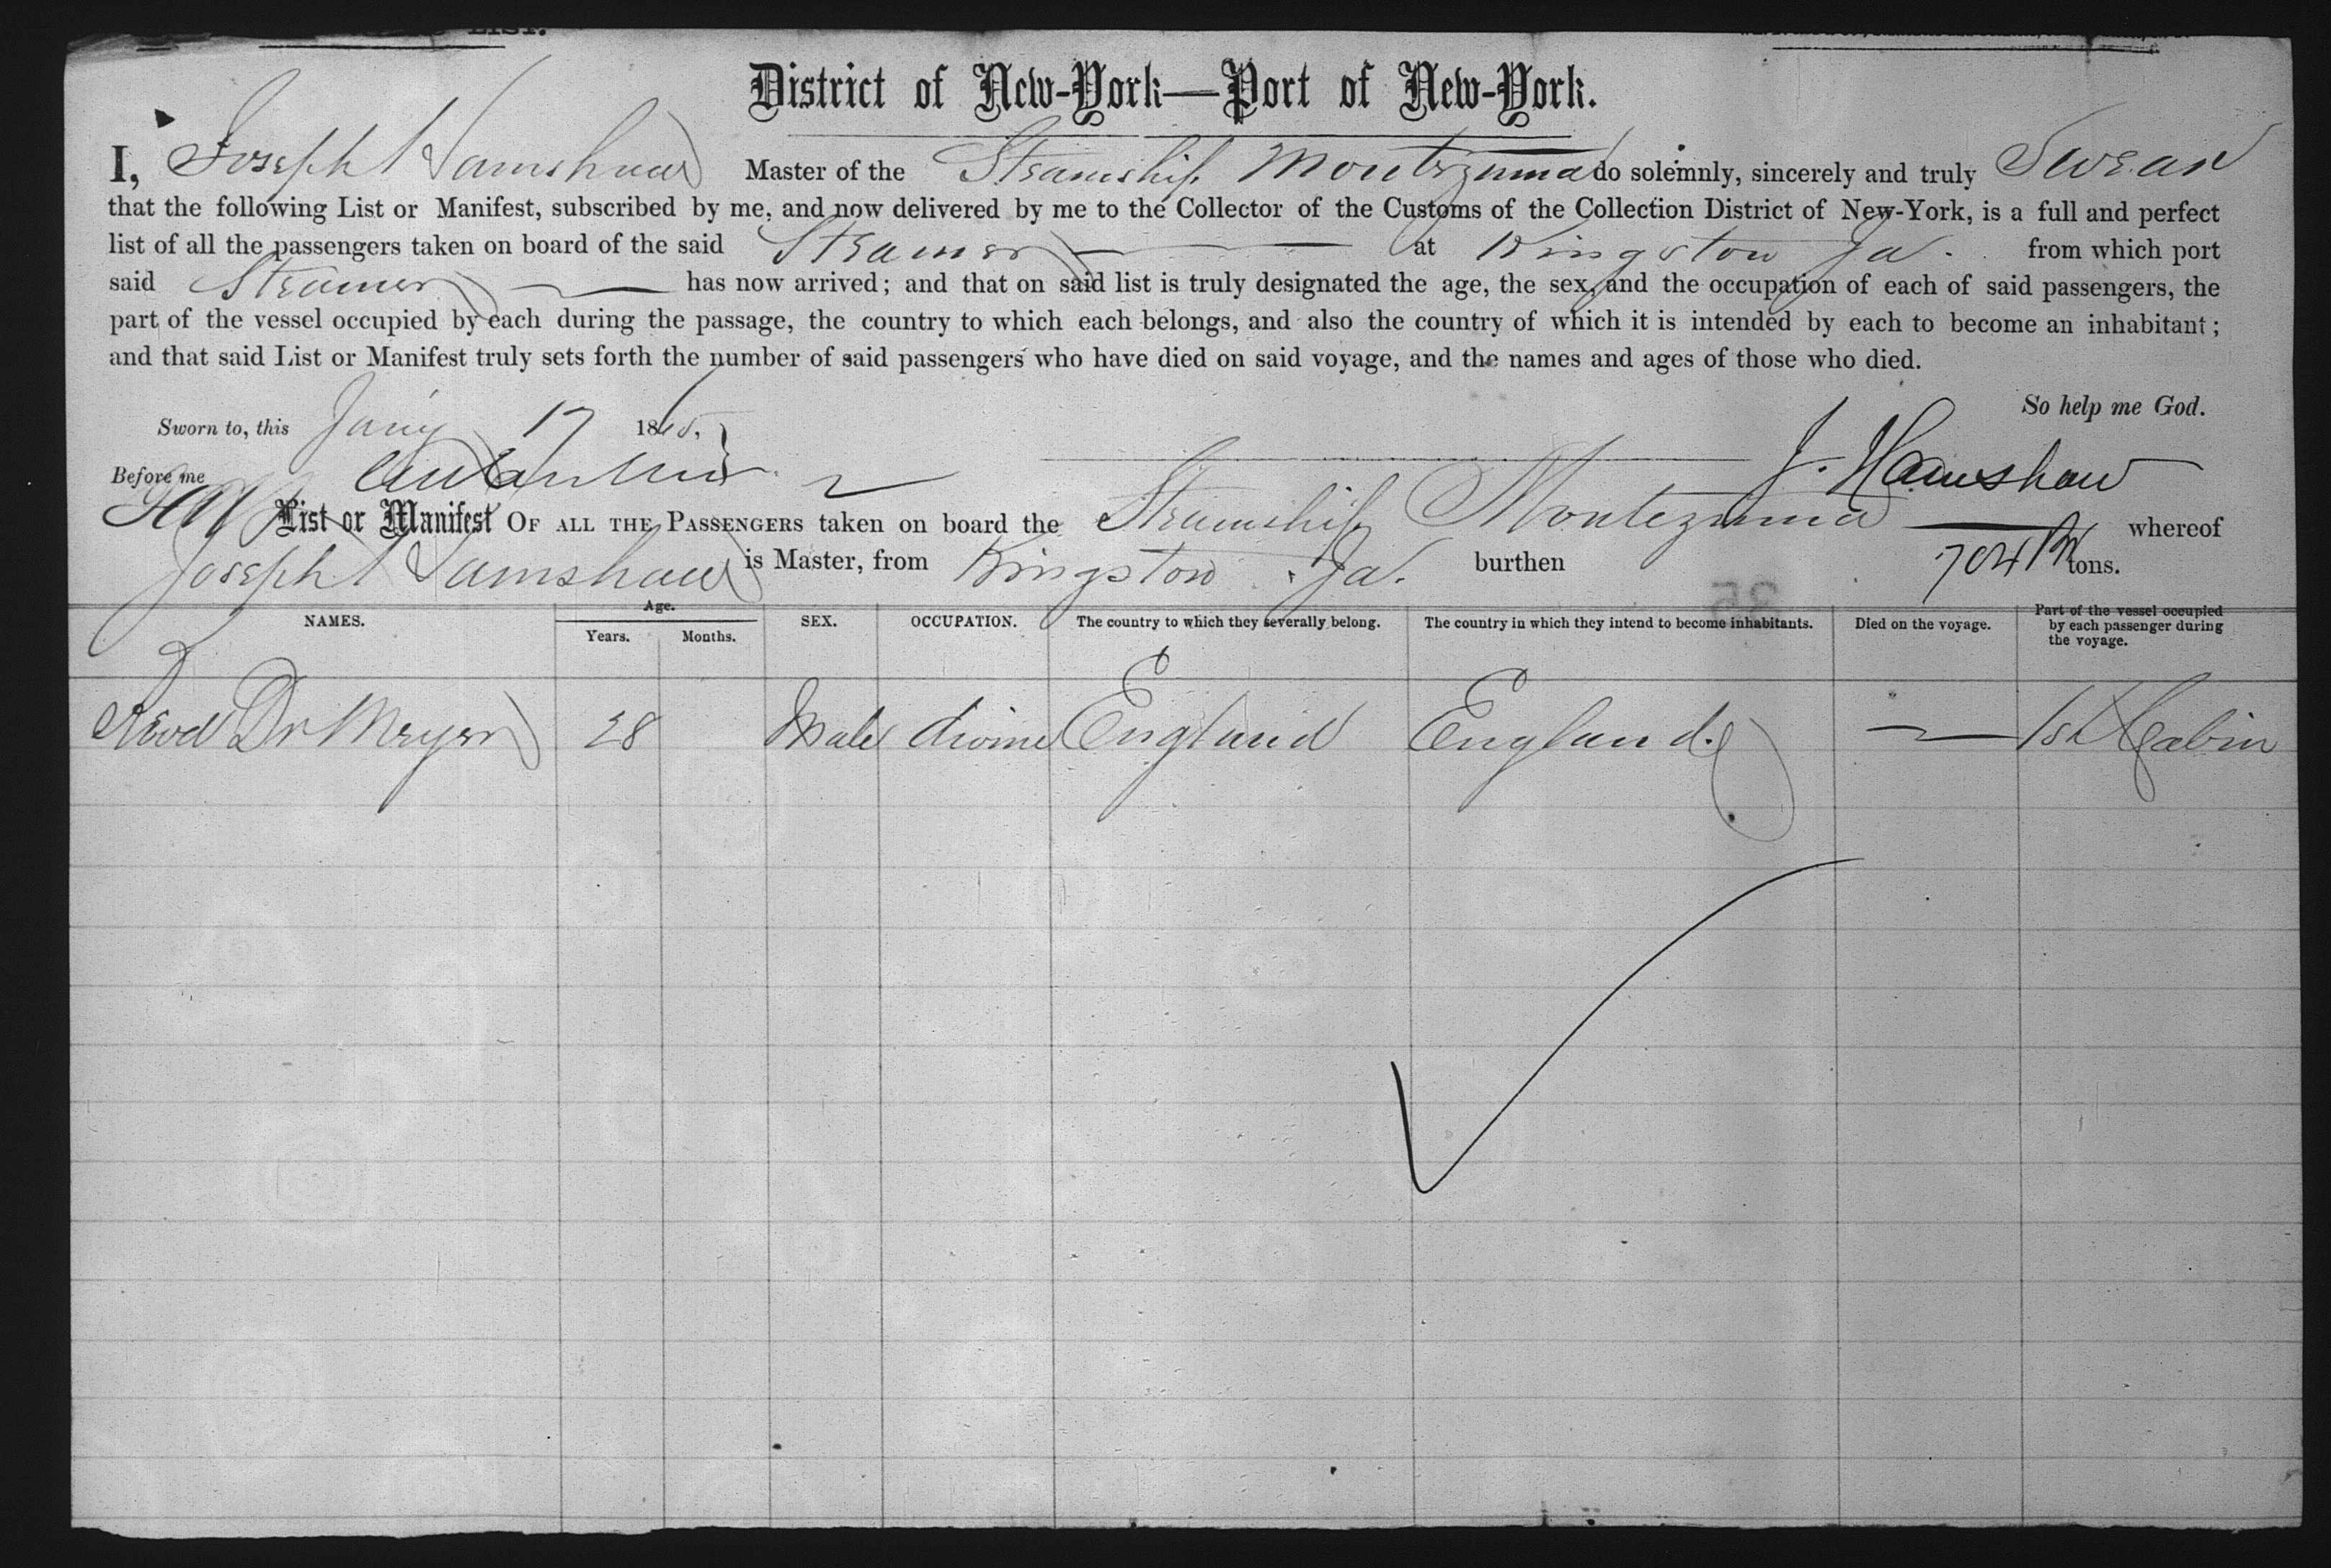 LIST.
District of New-York—Port of New-York.
I, Joseph Hamshaw Master of the Steamship Montezuma do solemnly, sincerely and truly Swear
that the following List or Manifest, subscribed by me, and now delivered by me to the Collector of the Customs of the Collection District of New-York, is a full and perfect
list of all the passengers taken on board of the said Steamer at Kingston Ja. from which port
said Steamer has now arrived; and that on said list is truly designated the age, the sex, and the occupation of each of said passengers, the
part of the vessel occupied by each during the passage, the country to which each belongs, and also the country of which it is intended by each to become an inhabitant;
and that said List or Manifest truly sets forth the number of said passengers who have died on said voyage, and the names and ages of those who died.
So help me God.
Sworn to, this Jany 17 186
J. Hamshaw
Before me
List or Manifest OF ALL THE PASSENGERS taken on board the Steamship Montezuma whereof
Joseph Hamshaw is Master, from Kingston Ja. burthen 704 tons.
NAMES. Age. Years. Months. SEX. OCCUPATION. The country to which they severally belong. The country in which they intend to become inhabitants. Died on the voyage. Part of the vessel occupied by each passenger during the voyage.
Revd Dr Meyer 28 Male divine England England. — 1st Cabin